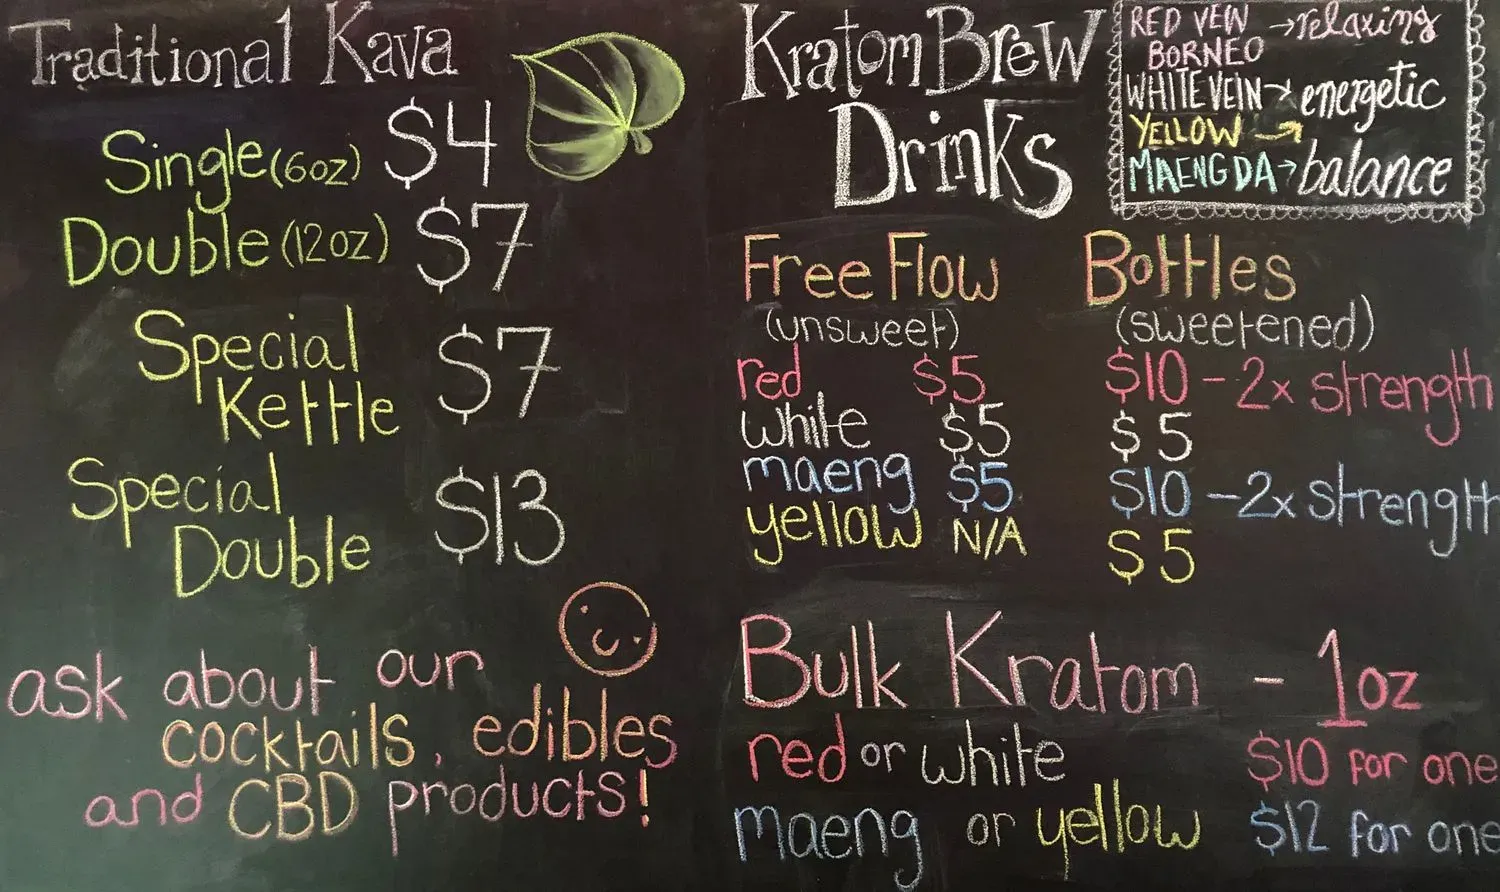 Traditional Kava
Single (6oz) $4
Double (12oz) $7
Special
Kettle $7
Special
Double $13
ask about our
cocktails, edibles
and CBD products!
Kratom Brew
Drinks
RED VEIN → relaxing
BORNEO
WHITE VEIN → energetic
YELLOW →
MAENG DA → balance
Free Flow
(unsweet)
Bottles
(sweetened)
red $5 $10 - 2x strength
white $5 $5
maeng $5 $10 - 2x strength
yellow N/A $5
Bulk Kratom - 1oz
red or white $10 for one
maeng or yellow $12 for one